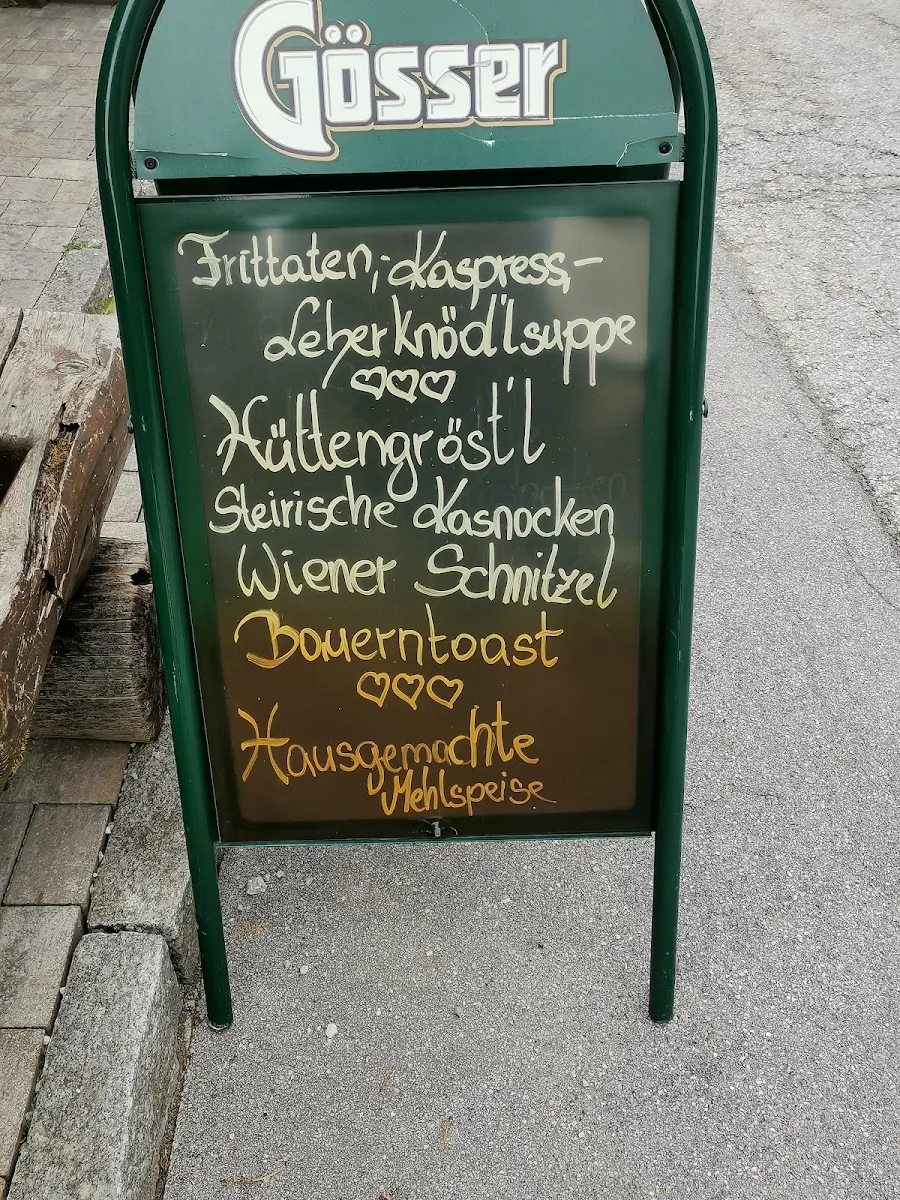 Gösser
Frittaten,- Kaspress,-
Leberknöd'lsuppe
Hüttengröst'l
Steirische Kasnocken
Wiener Schnitzel
Bauerntoast
Hausgemachte
Mehlspeise